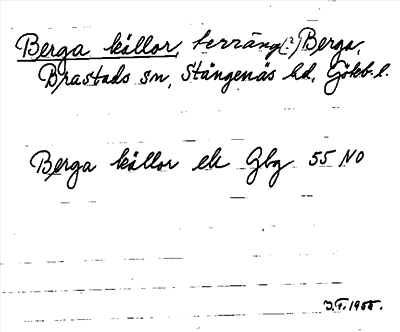 Berga källor, terräng(?) Berga,
Brastads sn, Stångenäs hd, Götebl.
Berga källor ek Gbg 55 NO
J.T. 1955.